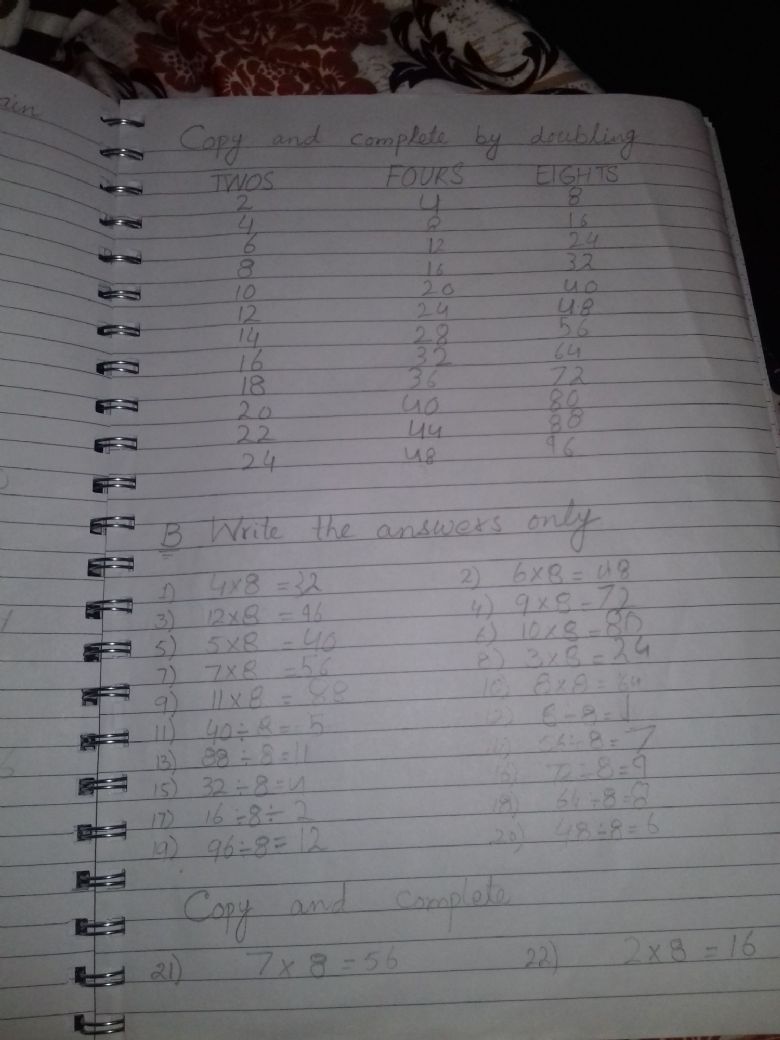 ain
Copy and complete by doubling
TWOS FOURS EIGHTS
2 4 8
4 8 16
6 12 24
8 16 32
10 20 40
12 24 48
14 28 56
16 32 64
18 36 72
20 40 80
22 44 88
24 48 96
B Write the answers only
1) 4×8 = 32 2) 6×8 = 48
3) 12×8 = 96 4) 9×8 = 72
5) 5×8 = 40 6) 10×8 = 80
7) 7×8 = 56 8) 3×8 = 24
9) 11×8 = 88 10) 8×8 = 64
11) 40÷8 = 5 12) 8÷8 = 1
13) 88÷8 = 11 14) 56÷8 = 7
15) 32÷8 = 4 16) 72÷8 = 9
17) 16÷8÷2 18) 64÷8 = 8
19) 96÷8 = 12 20) 48÷8 = 6
Copy and complete
21) 7×8 = 56 22) 2×8 = 16